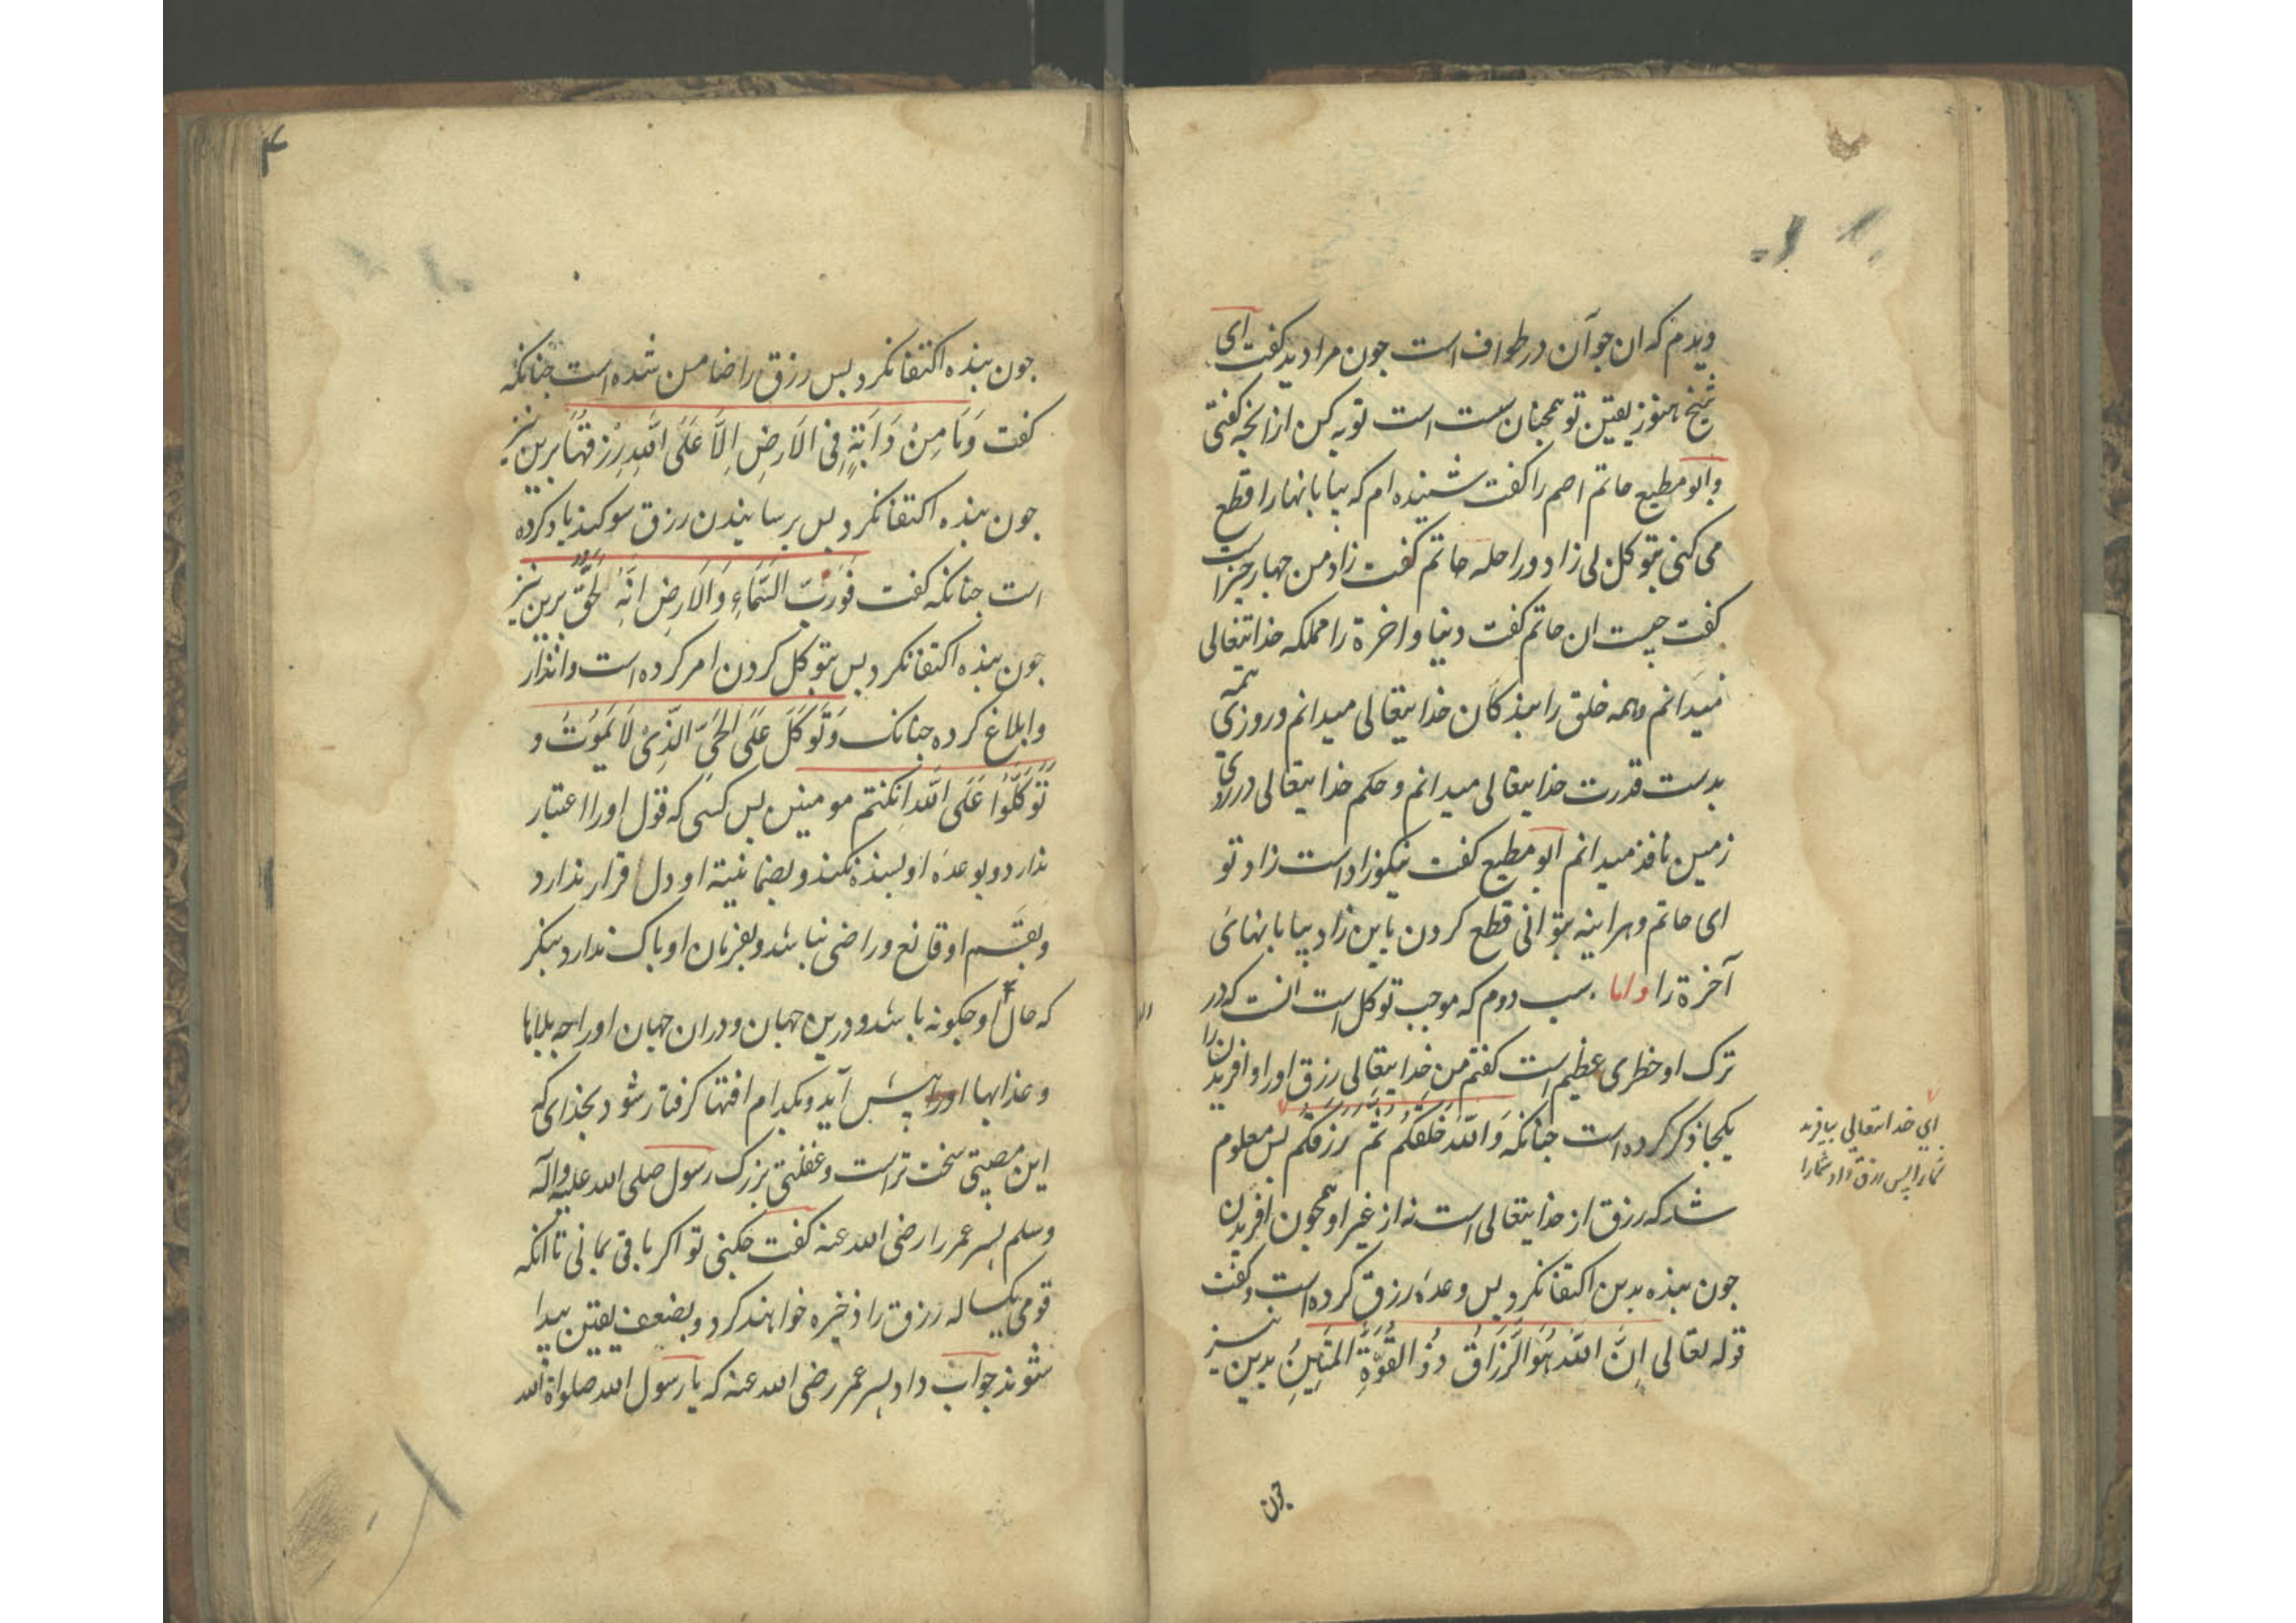 دیدم که ان جوآن در طواف است جون مرا دید کفت ای
شیخ هنوز یقین تو همجنان سست است توبه کن از انجه کفتی
و ابو مطیع حاتم اصم را کفت شنیده ام که بیابانها را قطع
می کنی بتوکل بی زاد و راحله حاتم کفت زاد من جهار جیز است
کفت جیست ان حاتم کفت دنیا و اخرة را مملکه خدایتعالی
میدانم و همه خلق را بندکان خدایتعالی میدانم و روزی همه
بدست قدرت خدایتعالی میدانم و حکم خدایتعالی در روی
زمین نافذ میدانم ابو مطیع کفت نیکو زاد است زاد تو
ای حاتم و هراینه بتوانی قطع کردن باین زاد بیابانهائ
آخرة را و اما سبب دوم که موجب توکل است انست که در
ترک او خطری عظیم است کفتم من خدایتعالی رزق او را و افریدن را
یکجا ذکر کرده است جنانکه وَاللّٰهُ خَلَقَکُم ثُمَّ رَزَقَکُم بس معلوم
شد که رزق از خدایتعالی است نه از غیر او همجون افریدن
جون بنده بدین اکتفا نکرد بس وعدۀ رزق کرده است و کفت
قوله تعالی اِنَّ اللّٰهَ هُوَ الرَّزَاقُ ذُو القُوَّةِ المَتِینُ بدین نیز
جون
ای خدایتعالی بیافرید
شما را پس رزق داد شما را
۴
جون بنده اکتفا نکرد بس رزق را ضامن شده است جنانکه
کفت وَمَا مِنْ دَابَّةٍ فِی الاَرضِ اِلَّا عَلَی اللّٰهِ رِزقُهَا برین نیز
جون بنده اکتفا نکرد بس برسانیدن رزق سوکند یاد کرده
است جنانکه کفت فَوَرَبِّ السَّمَاءِ وَالاَرضِ اِنَّهُ لَحَقٌّ برین نیز
جون بنده اکتفا نکرد بس بتوکل کردن امر کرده است و انذار
و ابلاغ کرده جنانک وَتَوَکَّل عَلَی الحَیِّ الَّذِیْ لَا یَمُوْتُ و
تَوَکَّلُوا عَلَی اللّٰهِ اِنکنتم مومنین بس کسی که قول او را اعتبار
ندارد و بوعدۀ او بسنده نکند و بضمانیة او دل قرار ندارد
و بقسم او قانع و راضی نباشد و بفرمان او باک ندارد بنکر
که حال او جکونه باشد و درین جهان و دران جهان او را جه بلاها
و عذابها او را پیش آید و بکدام افتها کرفتار شود بخدای که
این مصیبتی سخت تر است و غفلتی بزرک رسول صلی الله علیه و آله
و سلم بسر عمر را رضی الله عنه کفت جکنی تو اکر باقی بمانی تا انکه
قومی یکساله رزق را ذخیره خواهند کرد و بضعف یقین بیدا
شوند جواب داد بسر عمر رضی الله عنه که یا رسول الله صلواة الله